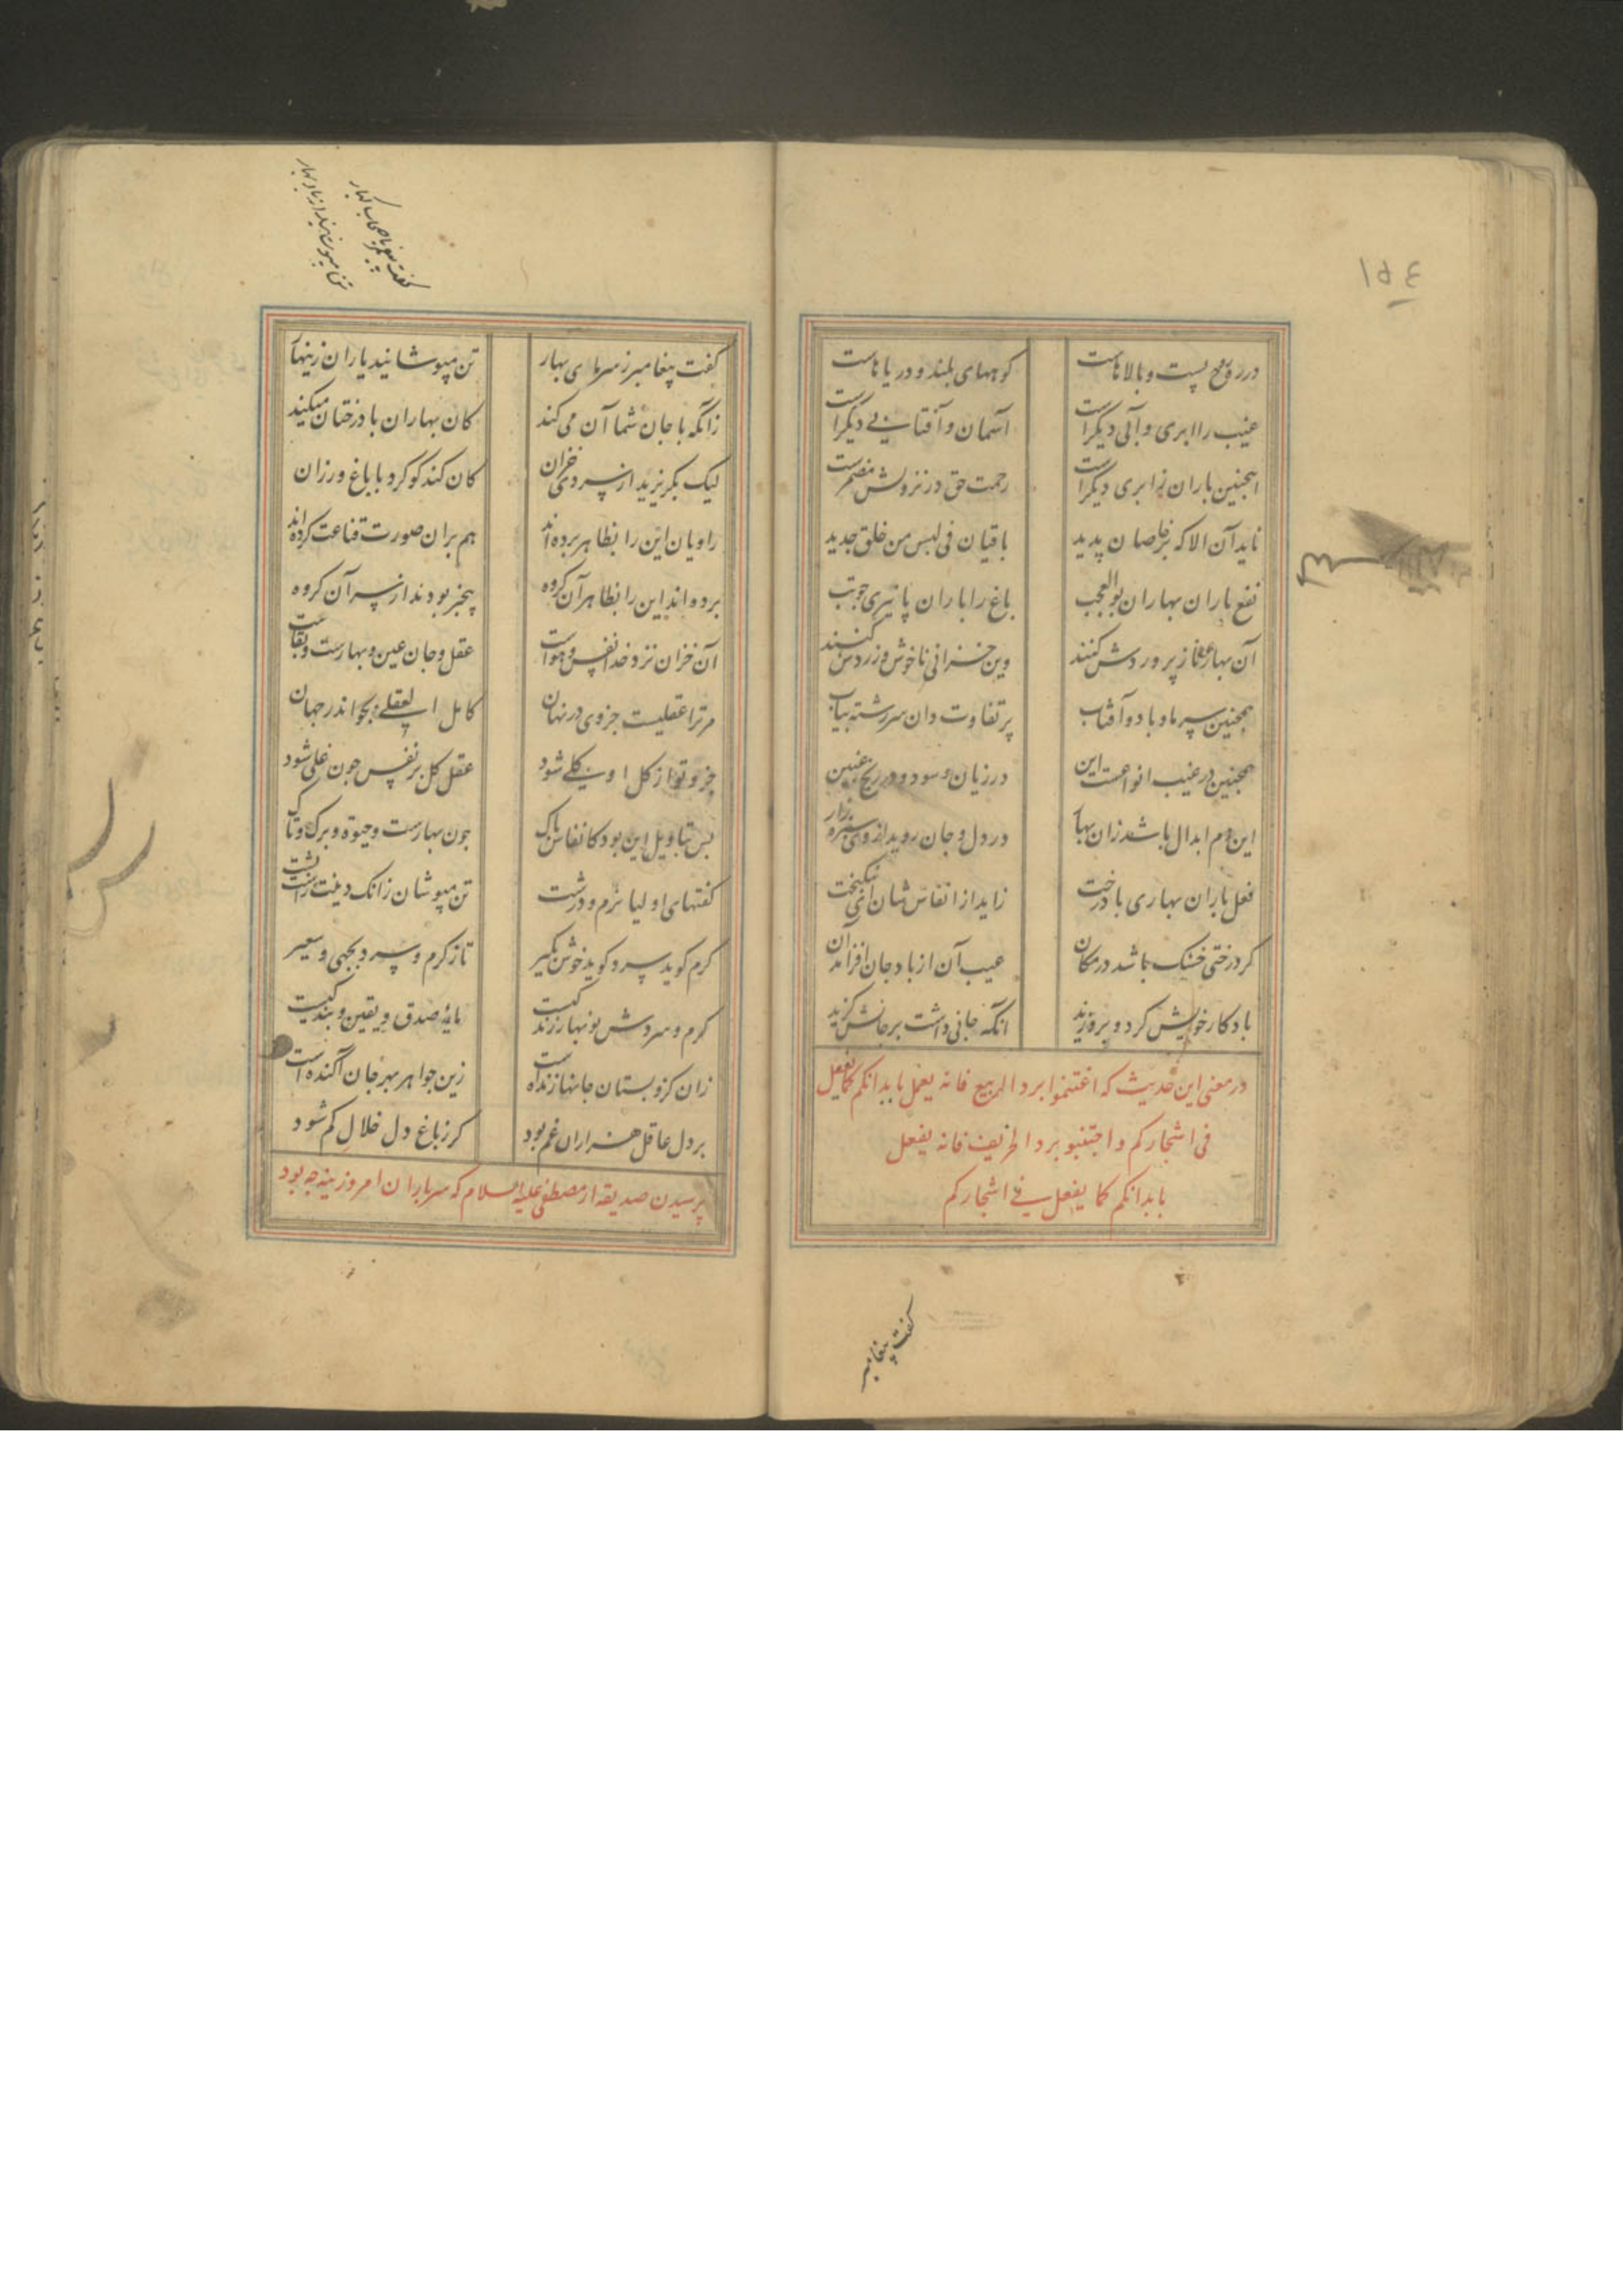 ۱۵٤
در ره روح پست و بالاهاست کوههای بلند و دریاهاست
غیب را ابری و آبی دیگرست آسمان و آفتابی دیگرست
همچنین باران ز ابری دیگرست رحمت حق در نزولش مضمرست
ناید آن الا که بر خاصان پدید باقیان فی لبس من خلق جدید
نفع باران بهاران بوالعجب باغ را باران پائیزی چو تب
آن بهاری ناز پروردش کنند وین خزانی ناخوش و زردش کنند
همچنین سرما و باد و آفتاب بر تفاوت دان سررشته بیاب
همچنین در غیب انواعست این در زیان و سود و در ربح و غبین
این دم ابدال باشد زان بهار در دل و جان روید از وی سبزه زار
فعل باران بهاری با درخت زاید از انفاس شان ای نیکبخت
کر درختی خشک باشد در مکان عیب آن از باد جان افزا مدان
باد کار خویش کرد و بر وزید انکه جانی داشت بر جانش کزید
در معنی این حدیث که اغتنموا برد الربیع فانه یعمل بابدانکم کما یفعل
فی اشجارکم و اجتنبو برد الخریف فانه یفعل
بابدانکم کما یفعل فی اشجارکم
کفت پیغامبر
کفت پیغمبر باصحاب کبار
تن مپوشانید از باد بهار
کفت پیغامبر ز سرمای بهار تن مپوشانید یاران زینهار
زانکه با جان شما آن می کند کان بهاران با درختان میکند
لیک بکریزید از سردی خزان کان کند کو کرد با باغ و رزان
راویان این را بظاهر برده اند هم بران صورت قناعت کرده اند
برده اند این را بظاهر آن کروه بیخبر بودند از سر آن کروه
آن خزان نزد خدا نفس و هواست عقل و جان عین و بهارست و بقاست
مر ترا عقلیست جزوی در نهان کامل العقلی بجو اندر جهان
جزو تو از کل او کلی شود عقل کل بر نفس چون غلی شود
پس بتاویل این بود کانفاس پاک چون بهارست و حیوة و برک و تاک
کفتهای اولیا نرم و درشت تن مپوشان زانک دینت راست پشت
کرم کوید سرد کوید خوش بکیر تا ز کرم و سرد بجهی و سعیر
کرم و سردش نوبهار زندکیست مایهٔ صدق و یقین و بندکیست
زان کزو بستان جانها زنده است زین جواهر بحر جان آکنده است
بر دل عاقل هزاران غم بود کر ز باغ دل خلال کم شود
پرسیدن صدیقه از مصطفی علیه السلام که سر باران امروزینه چه بود